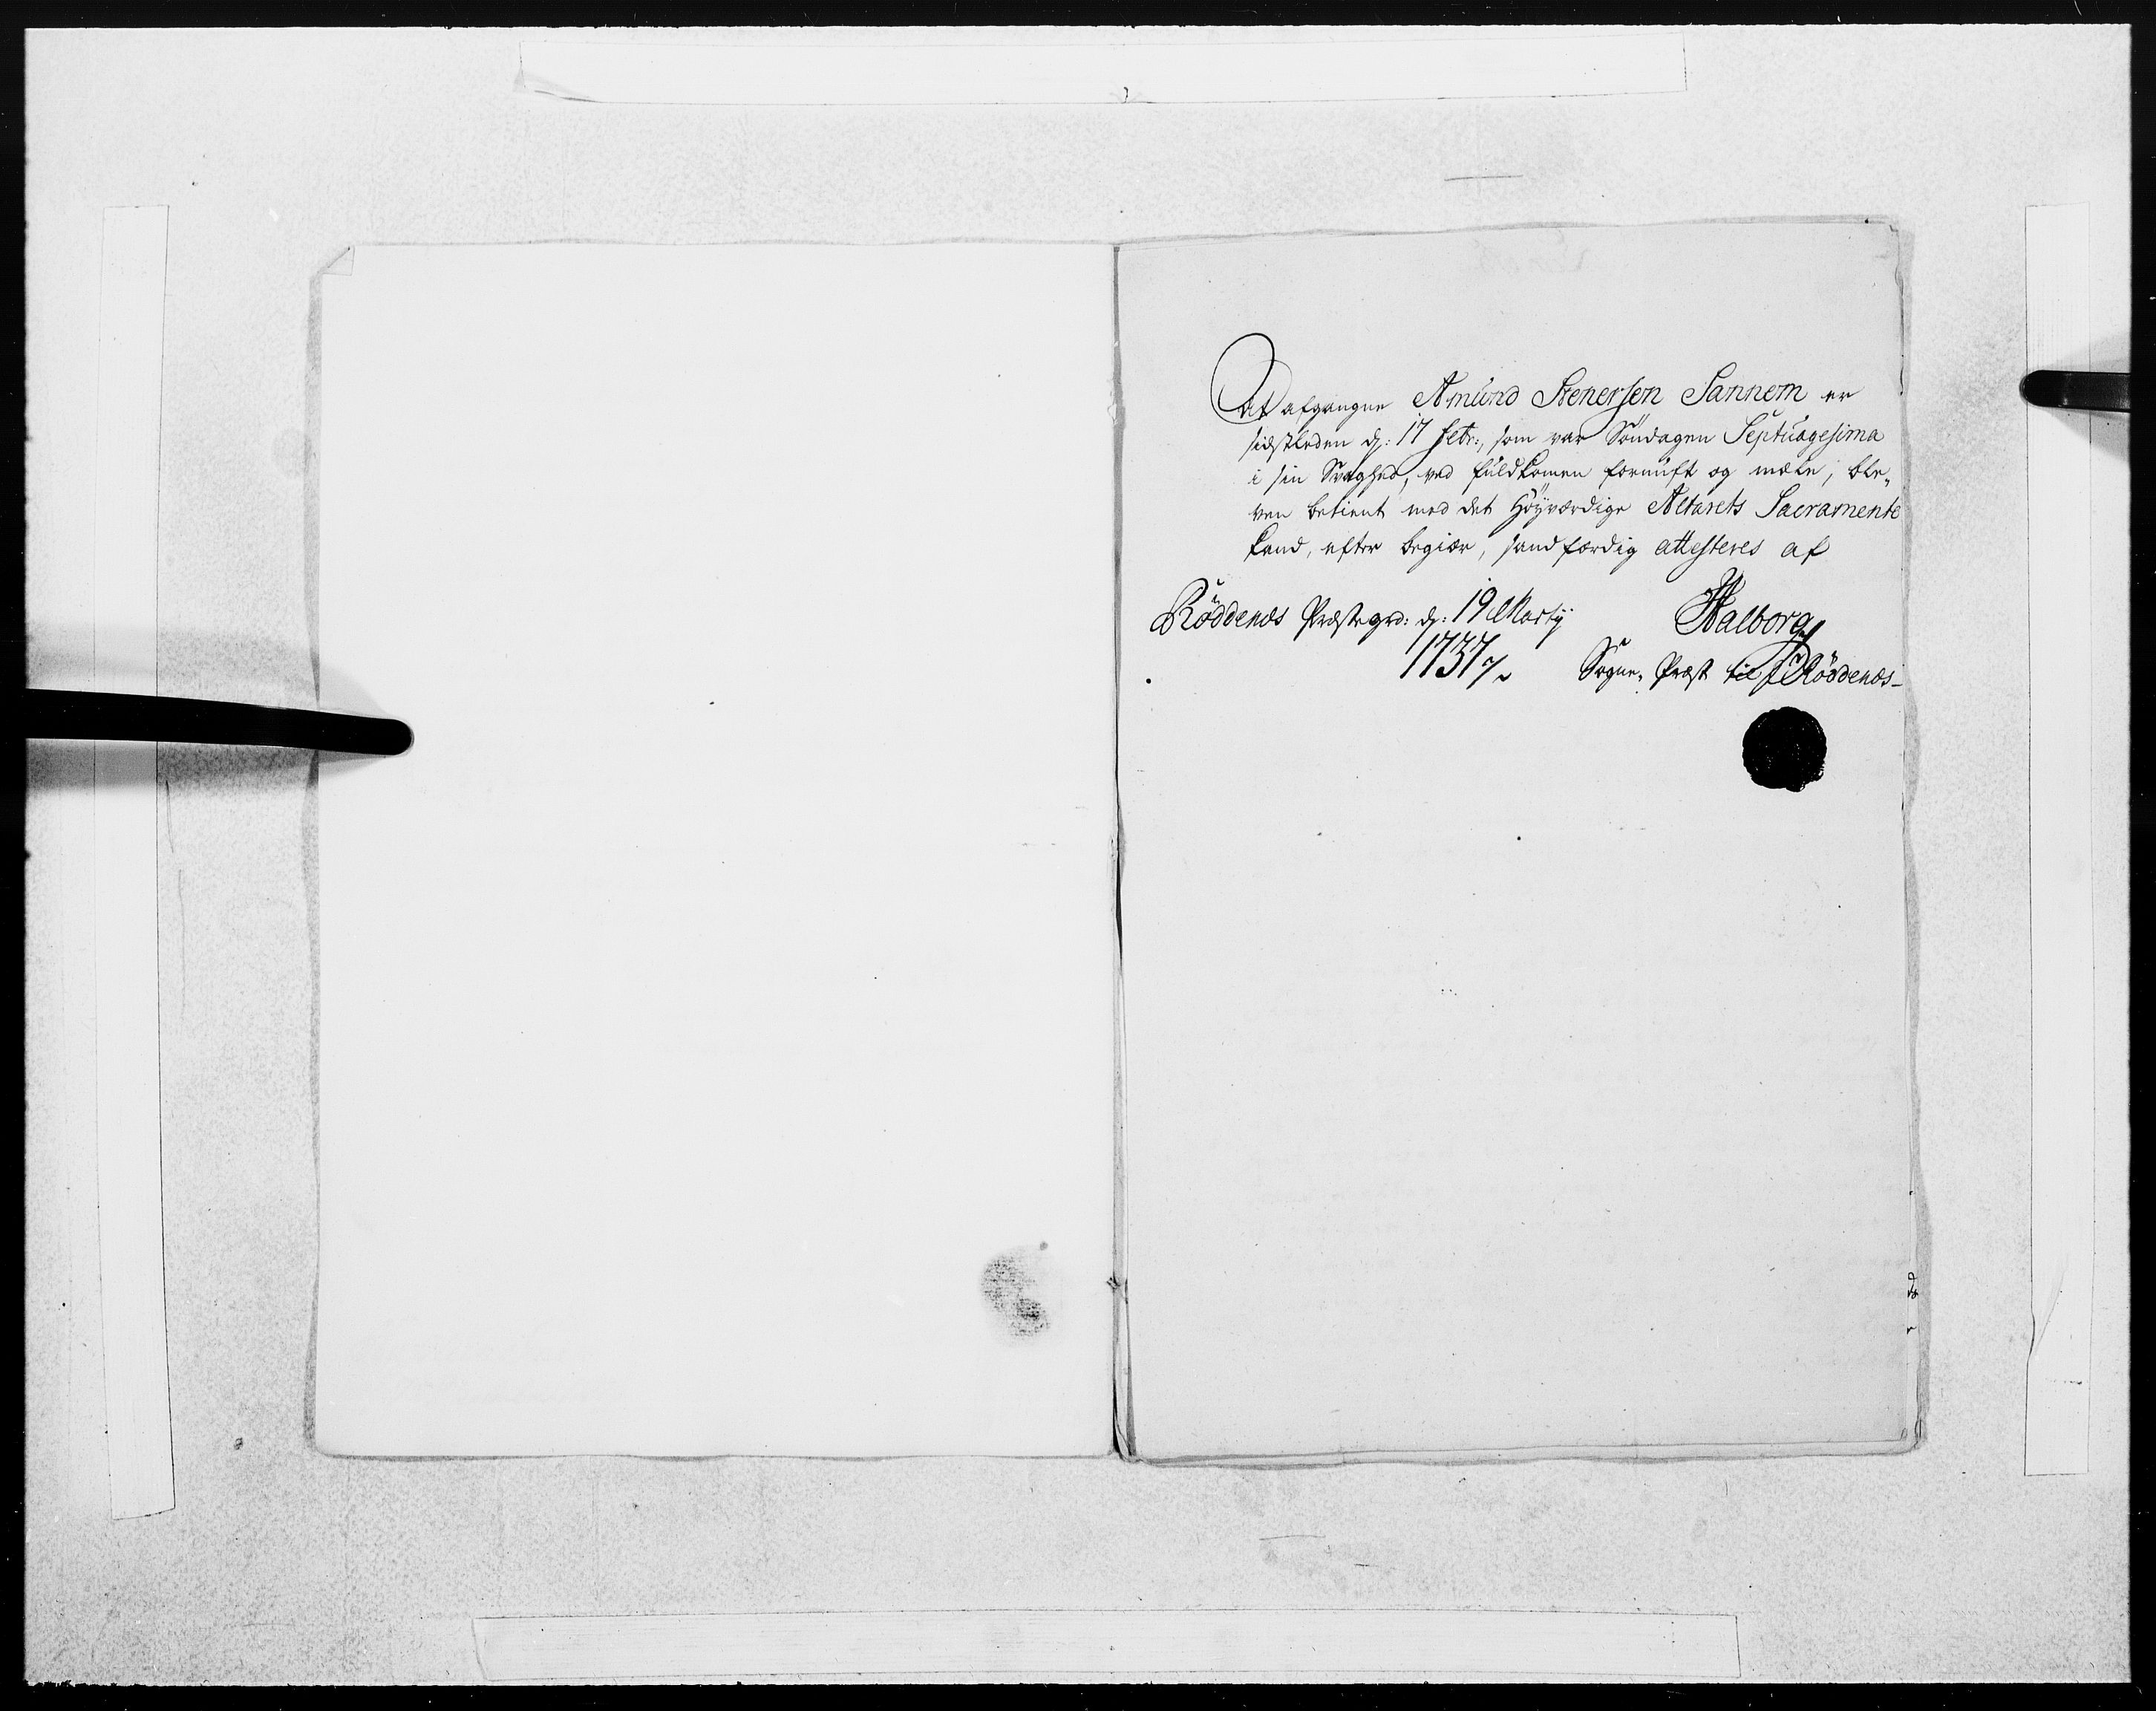 At afgangne Amund Stenersen Sannem er
sidstleden d: 17 Febr:, som var Söndagen Septuagesima
i sin Svaghed, ved fuldkomen fornuft og mæle, ble„
ven betient med det Höÿværdige Altarets Sacramente
kand, efter begiær, sandfærdig attesteres af
Röddenæs Præstegrd: d: 19 Martij
1737
Walborg
Sogne„ Præst til Röddenæs